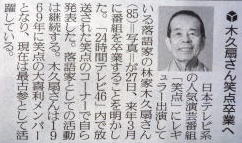 木久扇さん笑点卒業へ
日本テレビ系
の人気演芸番組
「笑点」にレギ
ュラー出演して
いる落語家の林家木久扇さん
(85)=写真=が27日、来年3月
に番組を卒業することを明かし
た。「24時間テレビ46」内で放
送された笑点のコーナーで自ら
発表した。落語家としての活動
は継続する。木久扇さんは19
69年に笑点の大喜利メンバー
となり、現在は最古参として活
躍している。